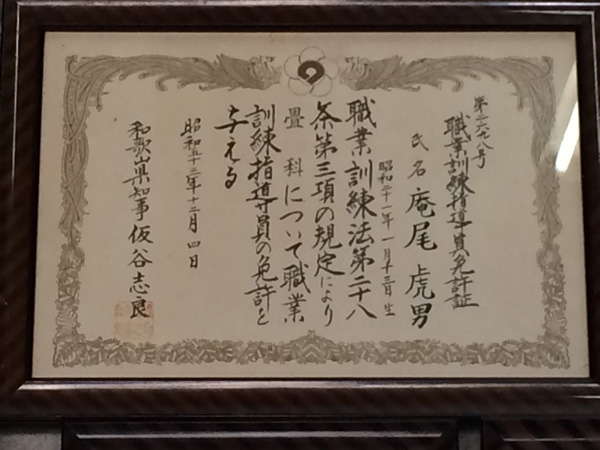 第三六七八号
職業訓練指導員免許証
氏名 庵尾虎男
昭和二十一年一月十三日生
職業訓練法第二十八
条第三項の規定により
畳科について職業
訓練指導員の免許を
与える
昭和五十三年十二月四日
和歌山県知事 仮谷志良